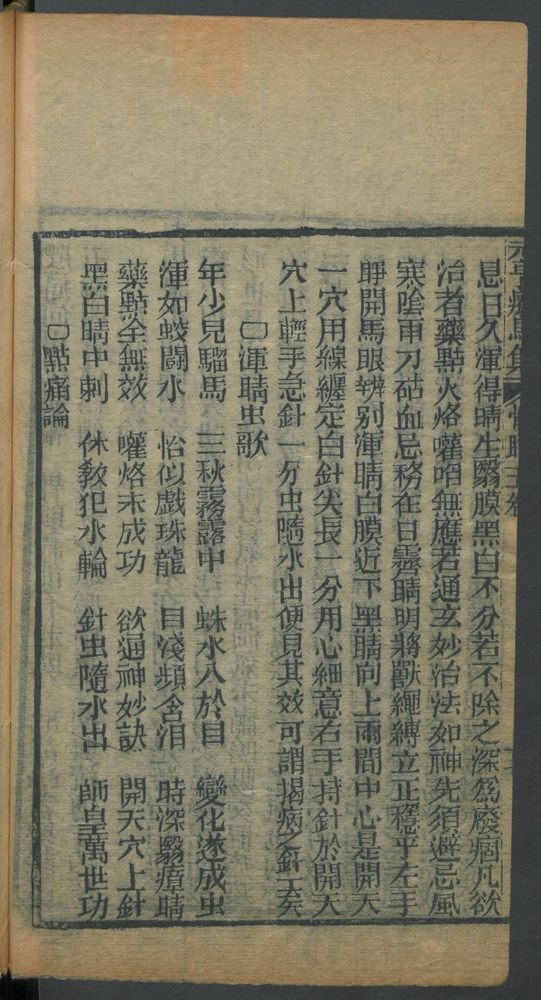 元亨療馬集
息日久渾得睛生翳膜黑白不分若不除之深爲廢痼凡欲
治者藥點火烙嚾啗無應若通玄妙治法如神先須避忌風
寒陰雨刀砧血忌務在日霽晴明將獸繩縛立正穩平左手
睜開馬眼辨别渾睛白膜近下黑睛向上兩間中心是開天
一穴用線纏定白針尖長一分用心細意右手持針於開天
穴上輕手急針一分虫隨水出便見其效可謂揭病之針工矣
渾睛虫歌
年少兒騮馬 三秋霧露中 蛛水入於目 變化遂成虫
渾如蛟鬪水 恰似戲珠龍 目淺頻含泪 時深翳瘴睛
藥點全無效 嚾烙未成功 欲通神妙訣 開天穴上針
黑白睛中刺 休敎犯水輪 針虫隨水出 師皇萬世功
點痛論